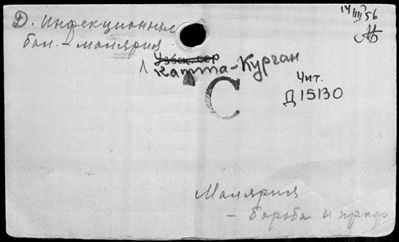 14 III 56
Д. Инфекционные
бол. - малярия
Узбек. ССР
Катта-Курган
С
Чит.
Д 15130
Малярия
- борьба и